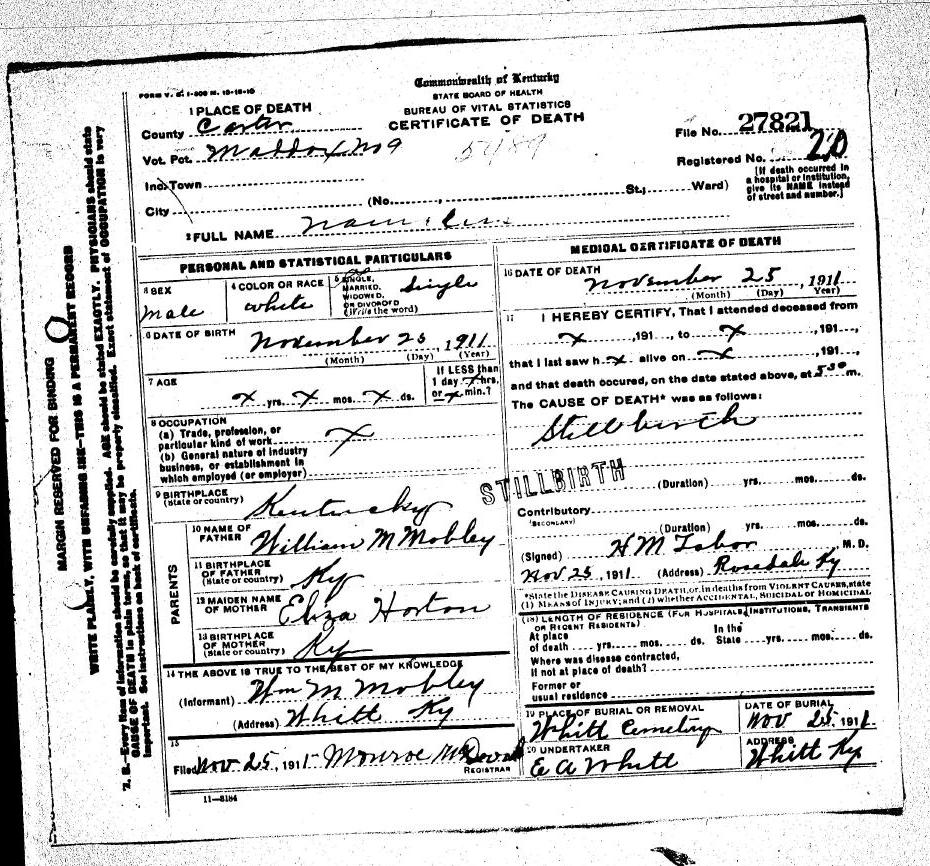 FORM V. S. 1-500 M. 12-16-10
Commonwealth of Kentucky
STATE BOARD OF HEALTH
BUREAU OF VITAL STATISTICS
CERTIFICATE OF DEATH
1 PLACE OF DEATH
County Carter
Vot. Pct. Maddox No 9
5489
File No. 27821
Registered No. 20
Inc. Town
City (No. , St.; Ward)
[If death occurred in
a hospital or institution,
give its NAME instead
of street and number.]
2 FULL NAME
PERSONAL AND STATISTICAL PARTICULARS
3 SEX
Male
4 COLOR OR RACE
White
5 SINGLE,
MARRIED,
WIDOWED,
OR DIVORCED
(Write the word)
Single
6 DATE OF BIRTH
November 25, 1911
(Month) (Day) (Year)
7 AGE
x yrs. x mos. x ds.
If LESS than
1 day x hrs.
or x min.?
8 OCCUPATION
(a) Trade, profession, or
particular kind of work x
(b) General nature of industry
business, or establishment in
which employed (or employer)
9 BIRTHPLACE
(State or country)
Kentucky
PARENTS
10 NAME OF
FATHER
William M Mobley
11 BIRTHPLACE
OF FATHER
(State or country)
Ky
12 MAIDEN NAME
OF MOTHER
Eliza Horton
13 BIRTHPLACE
OF MOTHER
(State or country)
Ky
14 THE ABOVE IS TRUE TO THE BEST OF MY KNOWLEDGE
(Informant) Wm M Mobley
(Address) Whitt Ky
15
Filed Nov 25, 1911 Monroe
REGISTRAR
11-3184
MEDICAL CERTIFICATE OF DEATH
16 DATE OF DEATH
November 25, 1911
(Month) (Day) (Year)
17 I HEREBY CERTIFY, That I attended deceased from
x, 191, to x, 191,
that I last saw h x alive on x, 191,
and that death occured, on the date stated above, at 5 30 m.
The CAUSE OF DEATH* was as follows:
Stillbirth
STILLBIRTH
(Duration) yrs. mos. ds.
Contributory
(SECONDARY)
(Duration) yrs. mos. ds.
(Signed) H M Tabor M. D.
Nov 25, 1911 (Address) Rosedale Ky
*State the DISEASE CAUSING DEATH, or, in deaths from VIOLENT CAUSES, state
(1) MEANS OF INJURY; and (2) whether ACCIDENTAL, SUICIDAL or HOMICIDAL
(18) LENGTH OF RESIDENCE (FOR HOSPITALS, INSTITUTIONS, TRANSIENTS
OR RECENT RESIDENTS)
At place of death yrs. mos. ds. In the State yrs. mos. ds.
Where was disease contracted,
if not at place of death?
Former or
usual residence
19 PLACE OF BURIAL OR REMOVAL
Whitt Cemetery
DATE OF BURIAL
Nov 25, 1911
20 UNDERTAKER
E A Whitt
ADDRESS
Whitt Ky
MARGIN RESERVED FOR BINDING
WRITE PLAINLY, WITH UNFADING INK—THIS IS A PERMANENT RECORD
N. B.—Every item of information should be carefully supplied. AGE should be stated EXACTLY. PHYSICIANS should state
CAUSE OF DEATH in plain terms, so that it may be properly classified. Exact statement of OCCUPATION is very
important. See instructions on back of certificate.